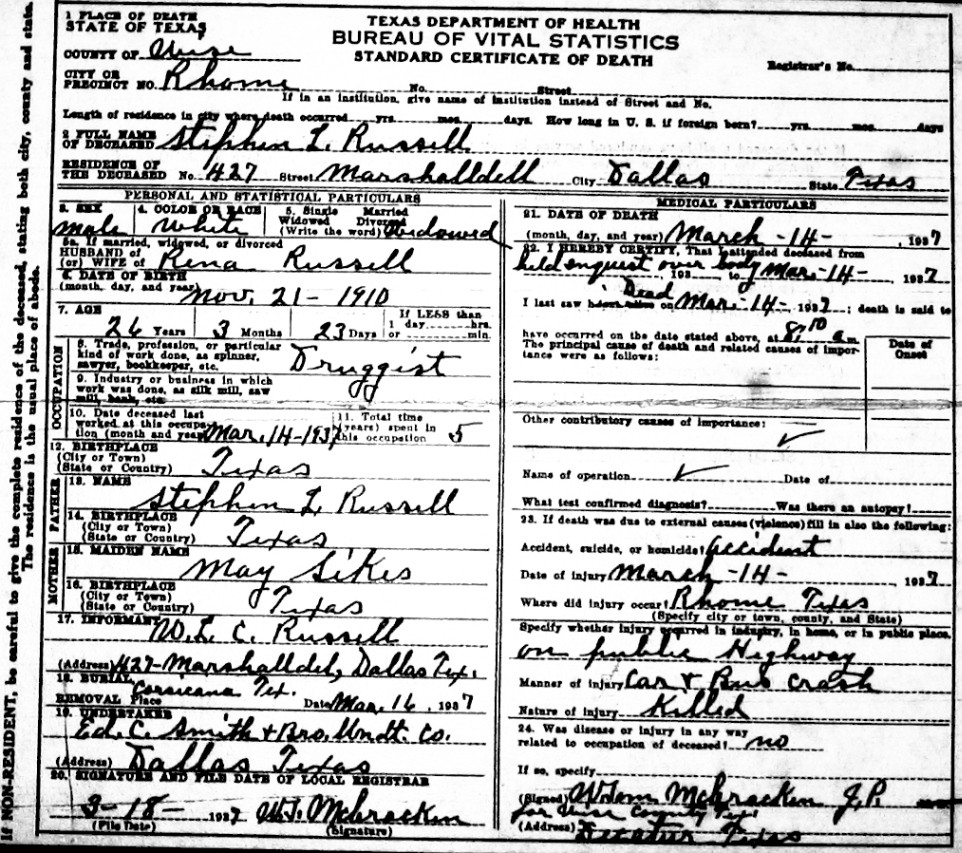 If NON-RESIDENT, be careful to give the complete residence of the deceased, stating both city, county and state.
The residence is the usual place of abode.
TEXAS DEPARTMENT OF HEALTH
BUREAU OF VITAL STATISTICS
STANDARD CERTIFICATE OF DEATH
1 PLACE OF DEATH
STATE OF TEXAS
COUNTY OF Wise
Registrar's No.
CITY OR
PRECINCT NO. Rhome No. Street
If in an institution, give name of institution instead of Street and No.
Length of residence in city where death occurred yrs. mos. days. How long in U. S. if foreign born? yrs. mos. days
2 FULL NAME
OF DECEASED Stephen L. Russell
RESIDENCE OF
THE DECEASED No. 427 Street Marshalldell City Dallas State Texas
PERSONAL AND STATISTICAL PARTICULARS
3. SEX male
4. COLOR OR RACE White
5. Single Married
Widowed Divorced
(Write the word) Widowed
5a. If married, widowed, or divorced
HUSBAND of
(or) WIFE of Rena Russell
6. DATE OF BIRTH
(month, day, and year) Nov. 21- 1910
7. AGE
26 Years 3 Months 23 Days
If LESS than
1 day, hrs.
or min.
OCCUPATION
8. Trade, profession, or particular
kind of work done, as spinner,
sawyer, bookkeeper, etc. Druggist
9. Industry or business in which
work was done, as silk mill, saw
mill, bank, etc.
10. Date deceased last
worked at this occupa-
tion (month and year) Mar. 14-1937
11. Total time
(years) spent in
this occupation 5
12. BIRTHPLACE
(City or Town)
(State or Country) Texas
FATHER
13. NAME
Stephen L Russell
14. BIRTHPLACE
(City or Town)
(State or Country) Texas
MOTHER
15. MAIDEN NAME
May Sikes
16. BIRTHPLACE
(City or Town)
(State or Country) Texas
17. INFORMANT W. L. C. Russell
(Address) 427-Marshalldel, Dallas Tex.
18. BURIAL Corsicana Tex.
REMOVAL Place Date Mar. 16, 1937
19. UNDERTAKER
Ed. C. Smith & Bro. Undt. Co.
(Address) Dallas Texas
20. SIGNATURE AND FILE DATE OF LOCAL REGISTRAR
3-18- 1937 W.T. McCracken
(File Date) (Signature)
MEDICAL PARTICULARS
21. DATE OF DEATH
(month, day, and year) March -14- , 1937
22. I HEREBY CERTIFY, That I attended deceased from
held enquist over body Mar.-14- 1937
193 to
Dead
I last saw h alive on Mar.-14- 1937; death is said to
have occurred on the date stated above, at 8:10 a m.
The principal cause of death and related causes of impor-
tance were as follows:
Date of
Onset
Other contributory causes of importance:
Name of operation Date of
What test confirmed diagnosis? Was there an autopsy?
23. If death was due to external causes (violence) fill in also the following:
Accident, suicide, or homicide? accident
Date of injury March -14- 1937
Where did injury occur? Rhome Texas
(Specify city or town, county, and State)
Specify whether injury occurred in industry, in home, or in public place.
on public Highway
Manner of injury Car & Bus crash
Nature of injury Killed
24. Was disease or injury in any way
related to occupation of deceased? no
If so, specify
(Signed) McCracken J.P.
for Wise County Tex
(Address) Decatur Texas